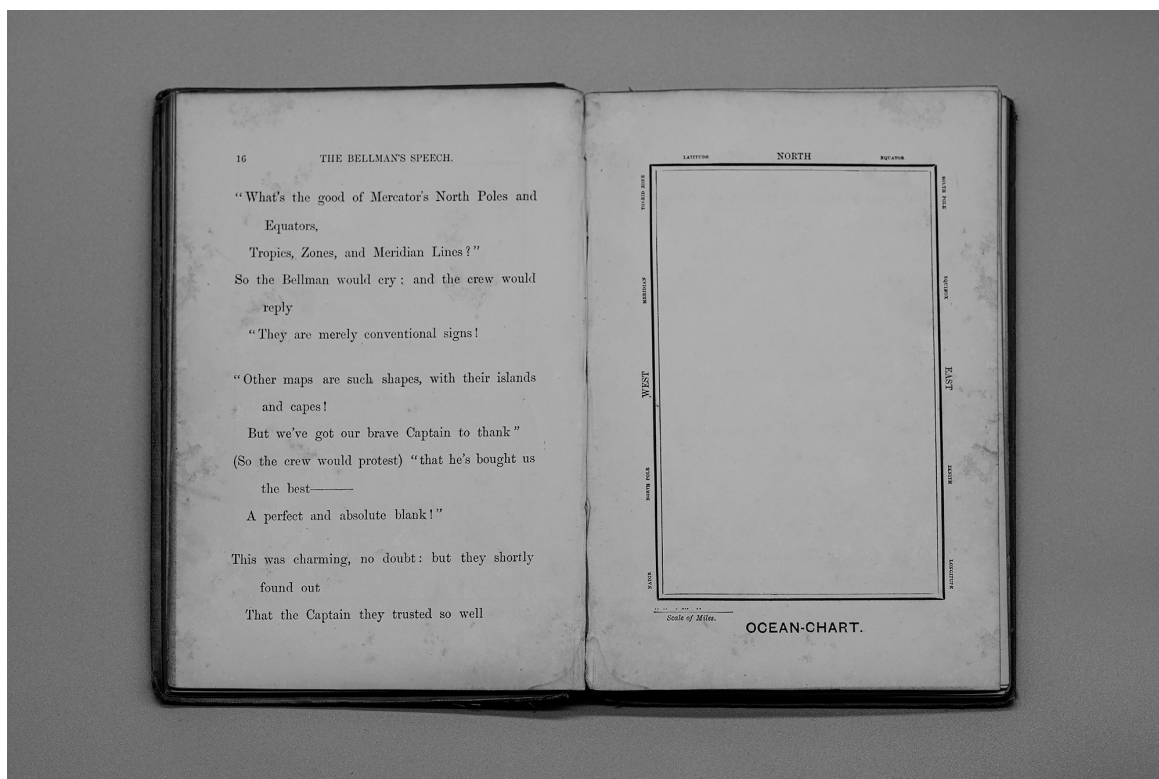 16 THE BELLMAN'S SPEECH.
“What's the good of Mercator's North Poles and
Equators,
Tropics, Zones, and Meridian Lines?”
So the Bellman would cry: and the crew would
reply
“They are merely conventional signs!
“Other maps are such shapes, with their islands
and capes!
But we've got our brave Captain to thank”
(So the crew would protest) “that he's bought us
the best——
A perfect and absolute blank!”
This was charming, no doubt: but they shortly
found out
That the Captain they trusted so well
LATITUDE NORTH EQUATOR
TORRID ZONE
MERIDIAN
WEST
NORTH POLE
NADIR
SOUTH POLE
EQUINOX
EAST
ZENITH
LONGITUDE
Scale of Miles.
OCEAN-CHART.